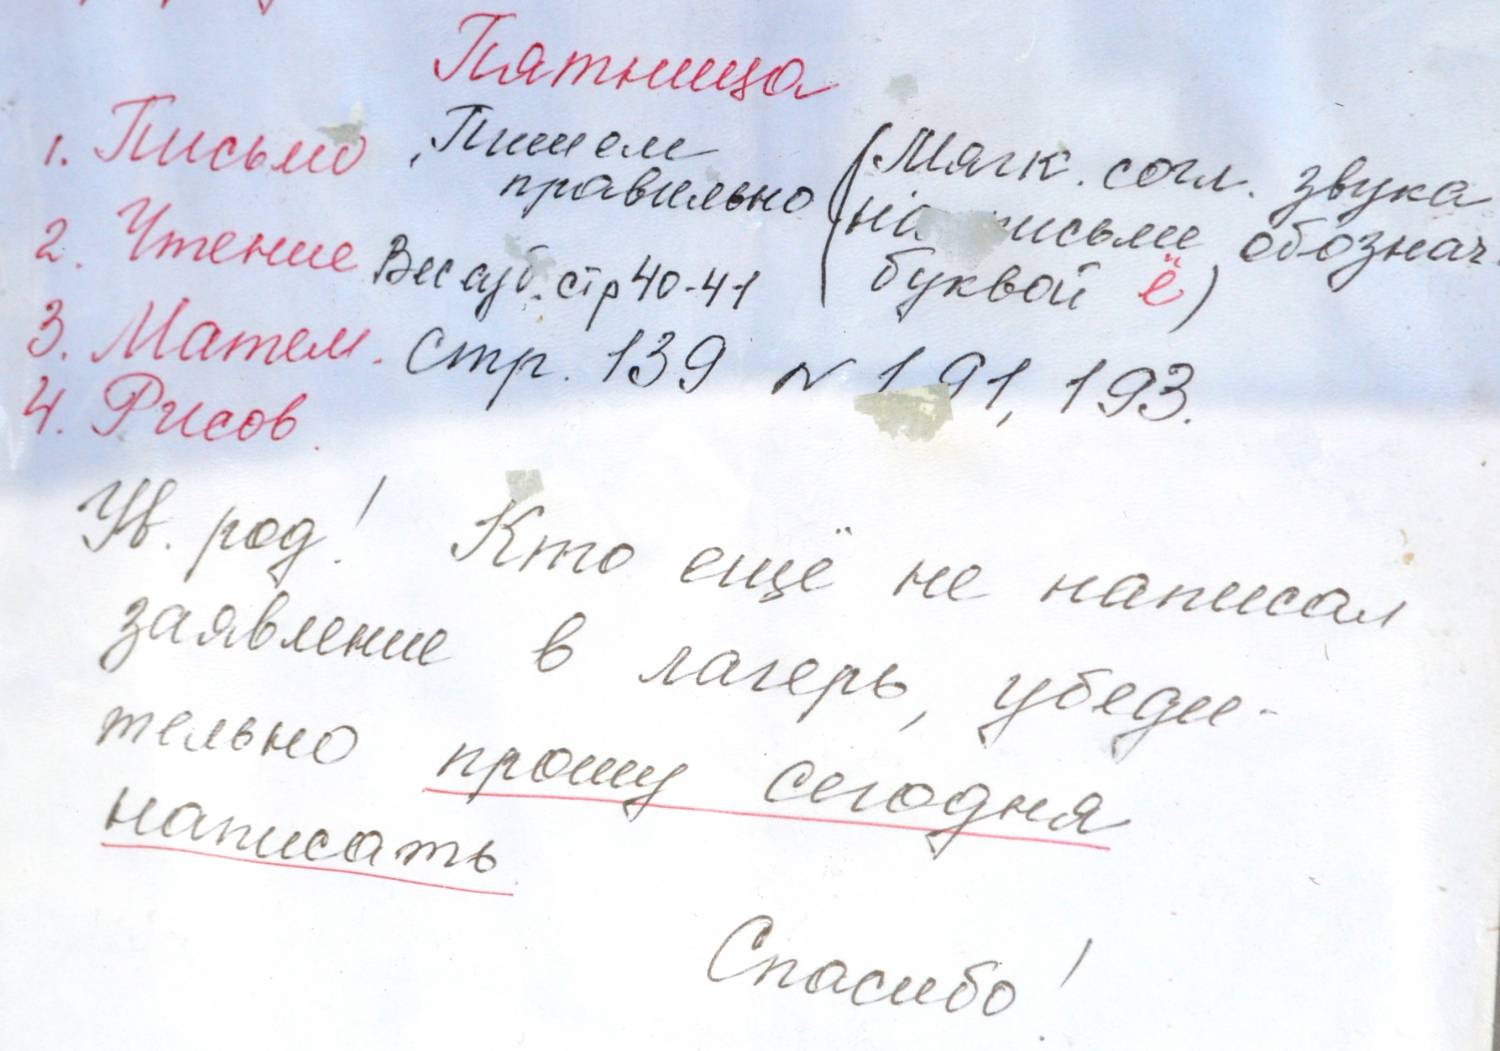 Пятница
1. Письмо , Пишем правильно (Мягк. согл. звука на письме обознач. буквой ё)
2. Чтение Вес аз. стр 40-41
3. Матем. Стр. 139 № 191, 193.
4. Рисов.
Ув. род.! Кто ещё не написал
заявление в лагерь, убеди-
тельно прошу сегодня
написать
Спасибо!